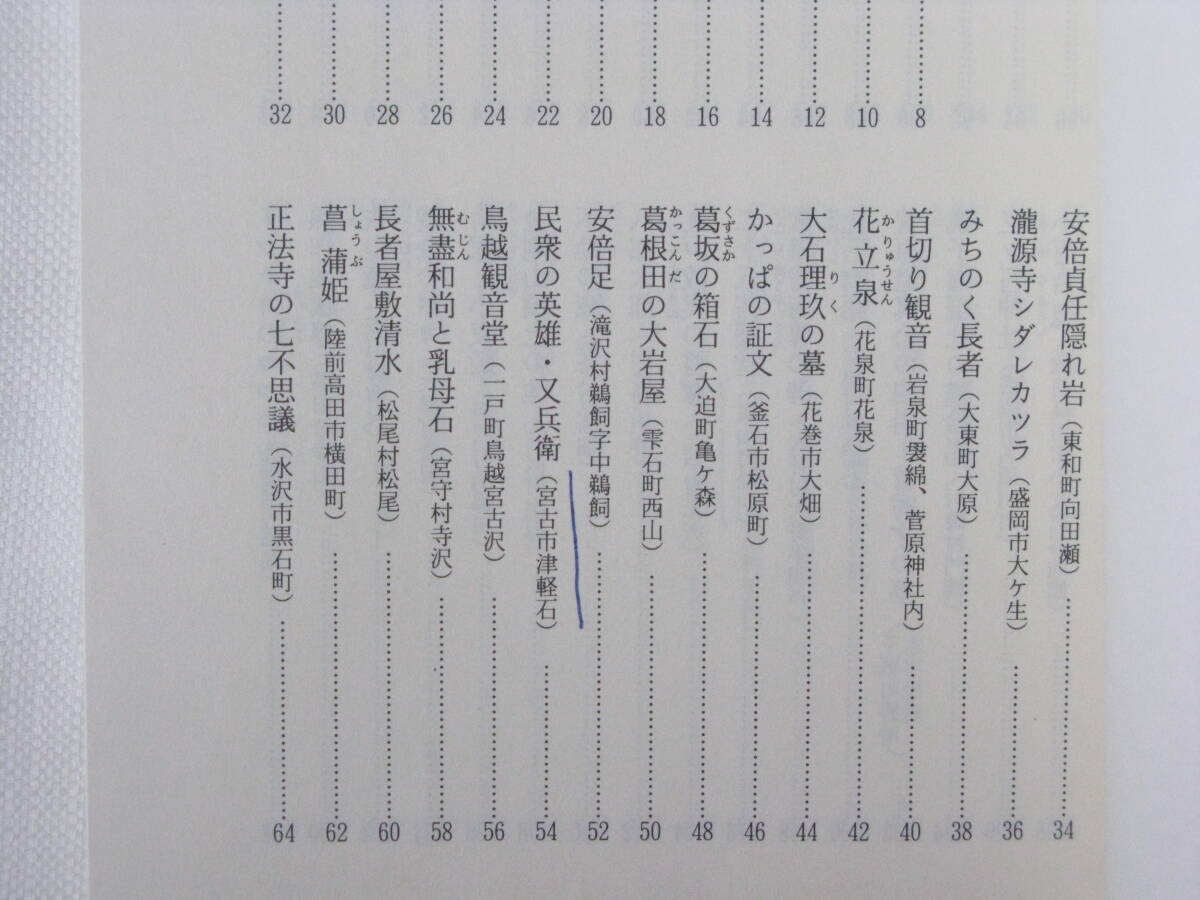 8
10
12
14
16
18
20
22
24
26
28
30
32
安倍貞任隠れ岩（東和町向田瀬）……34
瀧源寺シダレカツラ（盛岡市大ケ生）……36
みちのく長者（大東町大原）……38
首切り観音（岩泉町袰綿、菅原神社内）……40
花立泉（花泉町花泉）……42
かりゅうせん
大石理玖の墓（花巻市大畑）……44
りく
かっぱの証文（釜石市松原町）……46
葛坂の箱石（大迫町亀ケ森）……48
くずさか
葛根田の大岩屋（雫石町西山）……50
かっこんだ
安倍足（滝沢村鵜飼字中鵜飼）……52
民衆の英雄・又兵衛（宮古市津軽石）……54
鳥越観音堂（一戸町鳥越宮古沢）……56
無盡和尚と乳母石（宮守村寺沢）……58
むじん
長者屋敷清水（松尾村松尾）……60
菖蒲姫（陸前高田市横田町）……62
しょうぶ
正法寺の七不思議（水沢市黒石町）……64